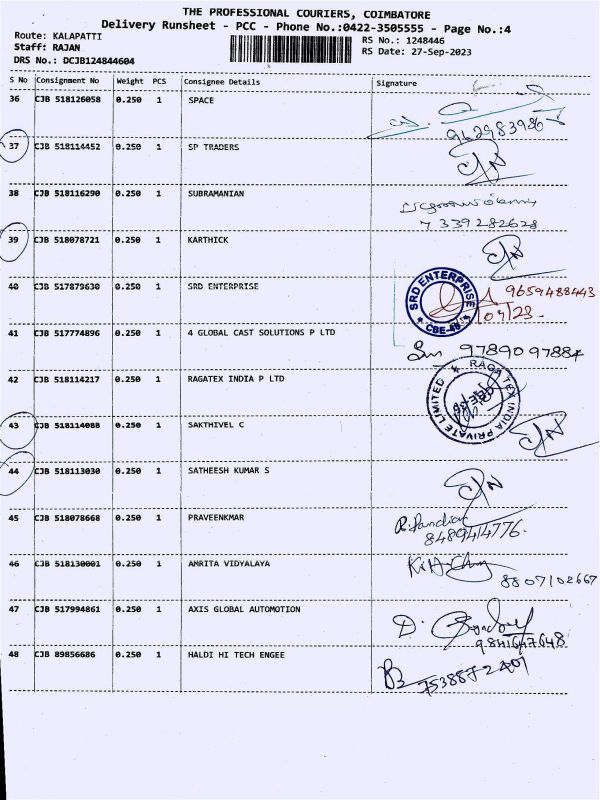 THE PROFESSIONAL COURIERS, COIMBATORE
Delivery Runsheet - PCC - Phone No.:0422-3505555 - Page No.:4
Route: KALAPATTI
Staff: RAJAN
DRS No.: DCJB124844604
RS No.: 1248446
RS Date: 27-Sep-2023
S No Consignment No Weight PCS Consignee Details Signature
36 CJB 518126058 0.250 1 SPACE
37 CJB 518114452 0.250 1 SP TRADERS
38 CJB 518116290 0.250 1 SUBRAMANIAN
7339282628
39 CJB 518078721 0.250 1 KARTHICK
40 CJB 517879630 0.250 1 SRD ENTERPRISE
SRD ENTERPRISE
CBE-48
9659488443
41 CJB 517774896 0.250 1 4 GLOBAL CAST SOLUTIONS P LTD
9789097884
42 CJB 518114217 0.250 1 RAGATEX INDIA P LTD
RAGATEX INDIA PRIVATE LIMITED
43 CJB 518114088 0.250 1 SAKTHIVEL C
44 CJB 518113030 0.250 1 SATHEESH KUMAR S
45 CJB 518078668 0.250 1 PRAVEENKMAR
R. Pandian
8489414776.
46 CJB 518130001 0.250 1 AMRITA VIDYALAYA
8807102667
47 CJB 517994861 0.250 1 AXIS GLOBAL AUTOMOTION
9841647648
48 CJB 89856686 0.250 1 HALDI HI TECH ENGEE
7538872401